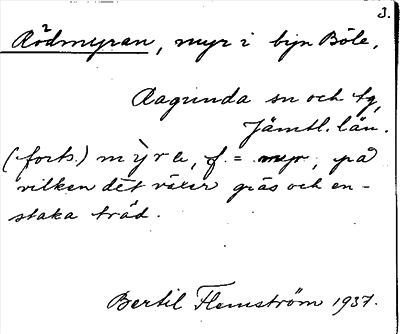 3.
Rödmyran, myr i byn Böle,
Ragunda sn och tg,
Jämtl. län.
(forts.) my̌ra, f. = myr, på
vilken det växer gräs och en-
staka träd.
Bertil Flemström 1937.